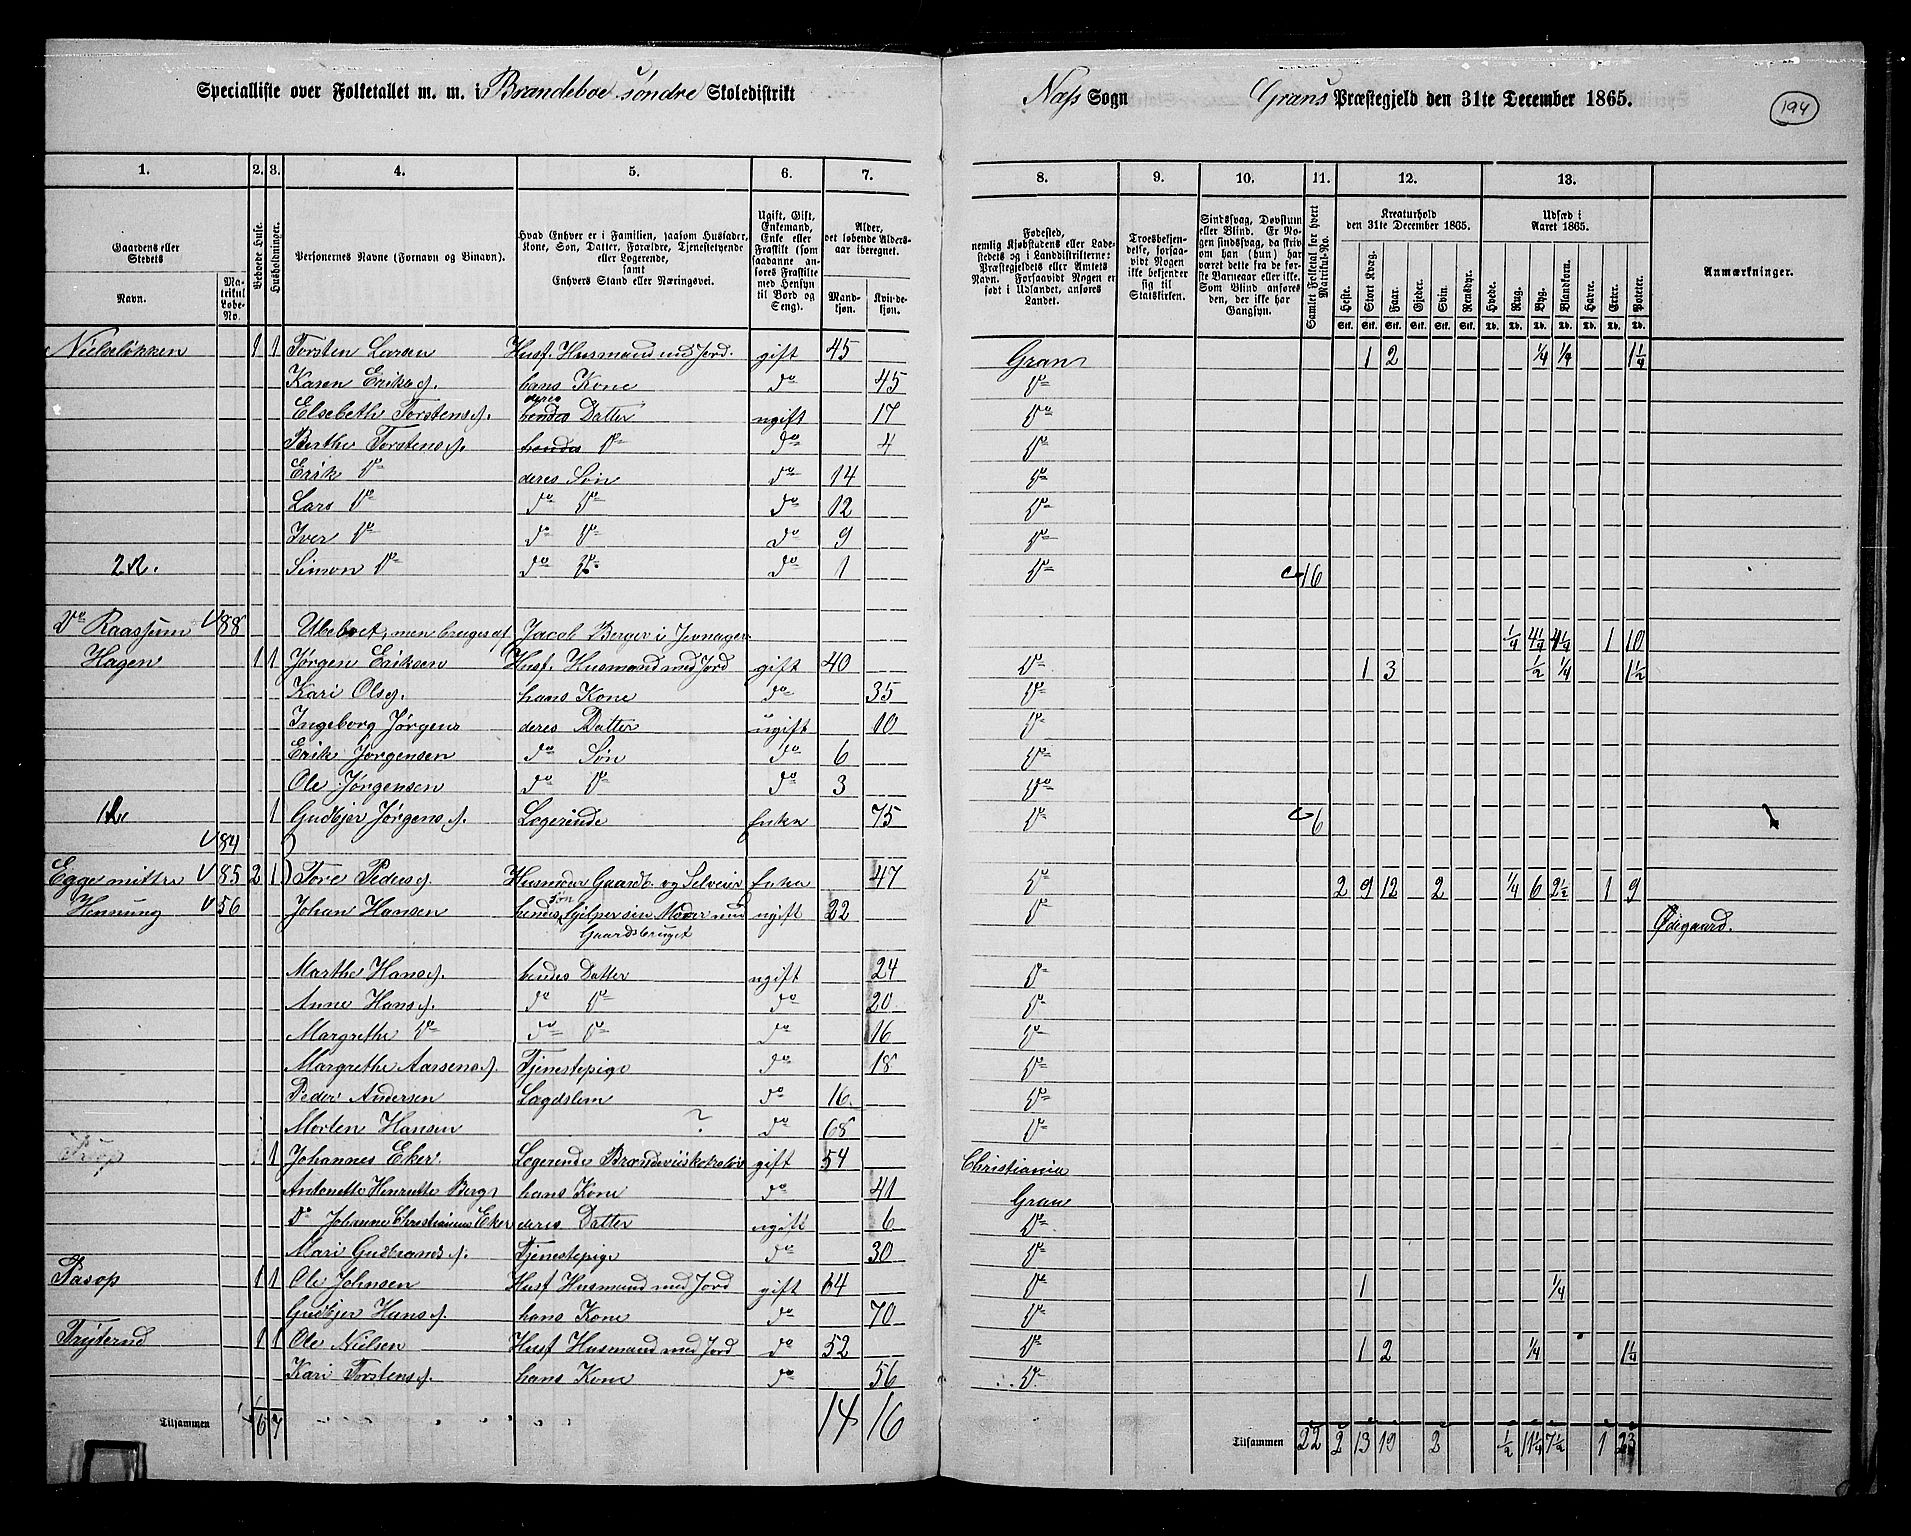 Specialliste over Folketallet m. m. i Brandeboe søndre Skoledistrikt
Næss Sogn Grans Præstegjeld den 31te December 1865. 194
1. 2. 3. 4. 5. 6. 7. 8. 9. 10. 11. 12. 13.
Gaardens eller Stedets Navn. Matrikul Løbe-No.
Beboede Huse. Husholdninger.
Personernes Navne (Fornavn og Binavn).
Hvad Enhver er i Familien, saasom Husfader, Kone, Søn, Datter, Forældre, Tjenestetyende eller Logerende, samt Enhvers Stand eller Næringsvei.
Ugift, Gift, Enkemand, Enke eller Fraskilt (som saadanne anføres Fraskilte med Hensyn til Bord og Seng).
Alder, det løbende Aldersaar iberegnet. Mandkjøn. Kvindekjøn.
Fødested, nemlig Kjøbstadens eller Ladestedets og i Landdistrikterne: Præstegjeldets eller Amtets Navn. Forsaavidt Nogen er født i Udlandet, anføres Landet.
Troesbekjendelse, forsaavidt Nogen ikke bekjender sig til Statskirken.
Sindssvag, Døvstum eller Blind. Er Nogen sindssvag, da skrives om han (hun) har været dette fra de første Barneaar eller ikke. Som Blind anføres den, der ikke har Gangsyn.
Samlet Folketal for hvert Matrikul-No.
Kreaturhold den 31te December 1865. Heste. Stort Kvæg. Faar. Gjeder. Svin. Rensdyr.
Udsæd i Aaret 1865. Hvede. Rug. Byg. Blandkorn. Havre. Erter. Poteter.
Anmærkninger.
Nielseløkken 1 1 Torsten Larsen Husf. Husmand med Jord. gift 45 Gran 1 2 1/4 1/4 1 1/4
Karen Eriksd. hans Kone do 45 do
Elsebethe Torstensd. deres hendes Datter ugift 17 do
Berthe Torstensd. hendes do do 4 do
Erik do deres Søn do 14 do
Lars do do do do 12 do
Iver do do do do 9 do
Simon do do do do 1 do 16
do Raassum 88 Ubeboet, men bruges af Jacob Berger i Jevnager 1/4 4 1/4 4 1/4 1 10
Hagen 1 1 Jørgen Eriksen Husf. Husmand med Jord gift 40 do 1 3 1/2 1/4 1 1/2
Kari Olsd. hans Kone do 35 do
Ingeborg Jørgens deres Datter ugift 10 do
Erik Jørgensen do Søn do 6 do
Ole Jørgensen do do do 3 do
1 Gudbjør Jørgensd. Logerende Enke 75 do 6
84
Egge mittre 85 2 1 Tore Pedersd. Husmoder Gaardb. og Selveier Enke 47 do 2 9 12 2 1/4 6 2 1/2 1 9
Hennung 56 Johan Hansen hendes Søn hjelper sin Moder med ugift 22 do Ødegaard.
Gaardsbruget
Marthe Hansd. hendes Datter ugift 24 do
Anne Hansd. do do do 20 do
Margrethe do do do do 16 do
Margrethe Aarsensd. Tjenestepige do 18 do
Peder Andersen Lægdslem do 16 do
Morten Hansen ? do 68 do
1 Johannes Eker Logerende gift 54 Christiania
Antonette Henriette Berg hans Kone do 41 Gran
do Johanne Christianne Eker deres Datter ugift 6 do
Mari Gudbrandsd. Tjenestepige do 30 do
Tasop 1 1 Ole Johnsen Husf Husmand med Jord gift 64 do 1 1/4
Gudbjør Hansd. hans Kone do 70 do
Trøterud 1 1 Ole Nielsen Husf Husmand med Jord do 52 do 1 2 1/4 1 1/4
Kari Torstensd. hans Kone do 56 do
Tilsammen 6 7 14 16
Tilsammen 22 2 13 19 2 1/2 11 1/4 7 1/2 1 23